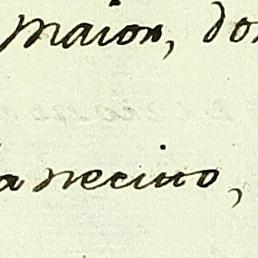 maior, don
a vecino,